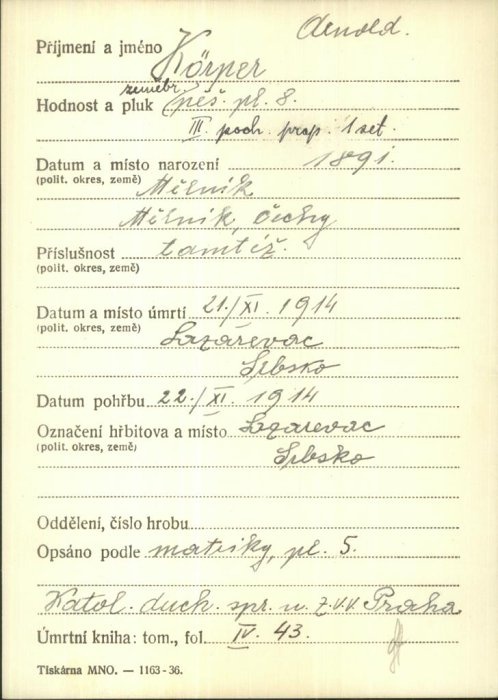 Arnold.
Příjmení a jméno Körper
zeměbr.
Hodnost a pluk pěš. pl. 8.
III. poch. prap. 1 set.
Datum a místo narození 1891.
(polit. okres, země) Mělník
Mělník, Čechy
Příslušnost tamtéž.
(polit. okres, země)
Datum a místo úmrtí 21./XI. 1914
(polit. okres, země) Lazařevac
Srbsko
Datum pohřbu 22./XI. 1914
Označení hřbitova a místo Lazarevac
(polit. okres, země) Srbsko
Oddělení, číslo hrobu
Opsáno podle matriky, pl. 5.
Katol. duch. spr. u. Z.V.V. Praha
Úmrtní kniha: tom., fol. IV. 43.
Tiskárna MNO. — 1163-36.